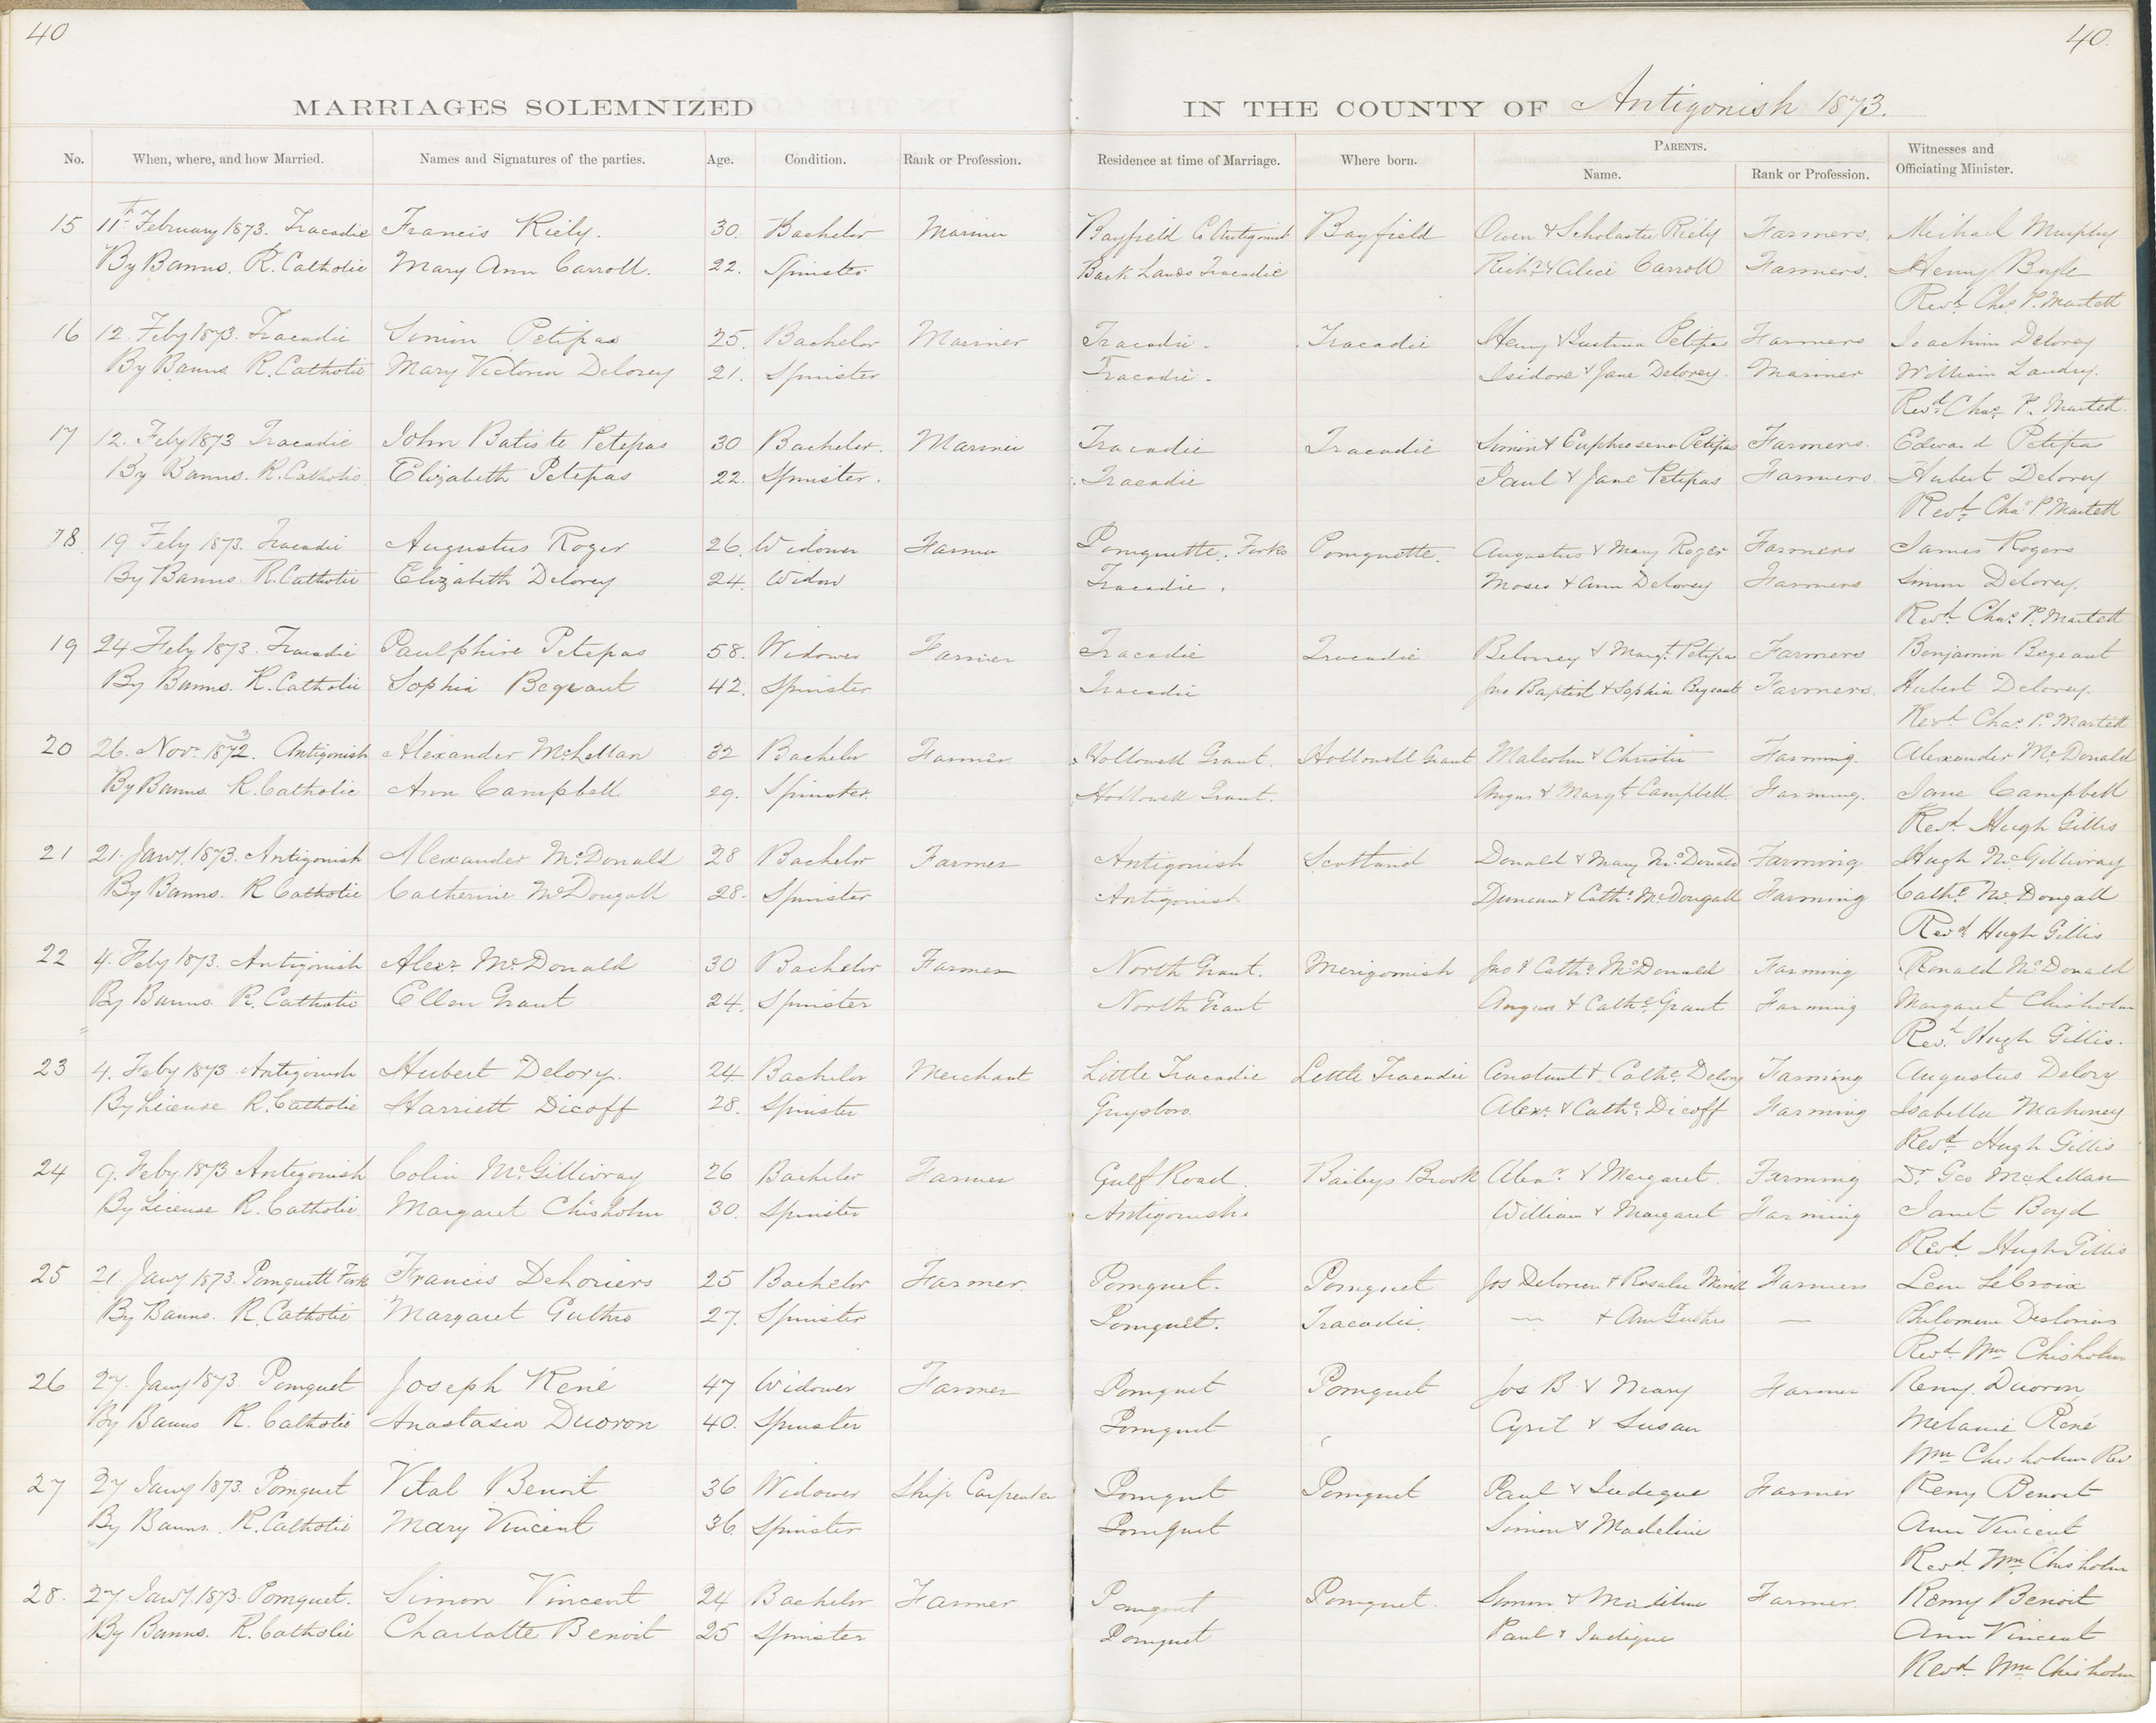 40
40.
MARRIAGES SOLEMNIZED IN THE COUNTY OF Antigonish 1873.
No. When, where, and how Married. Names and Signatures of the parties. Age. Condition. Rank or Profession. Residence at time of Marriage. Where born. PARENTS. Name. Rank or Profession. Witnesses and Officiating Minister.
15 11th February 1873. Tracadie Francis Riely. 30. Bachelor Mariner Bayfield Co Antigonish Bayfield Owen & Scholastic Riely Farmers. Michael Murphy
By Banns. R. Catholic Mary Ann Carroll. 22. Spinster Back Lands Tracadie Richd & Alice Carroll Farmers. Henry Boyle
Revd. Chas P. Martell
16 12. Feby 1873. Tracadie Simon Petipas 25. Bachelor Mariner Tracadie. Tracadie Henry & Justina Petipas Farmers Joachim Delorey
By Banns. R. Catholic Mary Victoria Delorey 21. Spinster Tracadie. Isidore & Jane Delorey. Mariner William Landry.
Revd. Chas. P. Martell.
17 12. Feby 1873 Tracadie John Batiste Petepas 30 Bachelor. Mariner Tracadie Tracadie Simon & Euphrosena Petipas Farmers. Edward Petipa
By Banns. R. Catholic. Elizabeth Petepas 22. Spinster. Tracadie Paul & Jane Petipas Farmers Hubert Delorey
Revd. Chas P. Martell
18 19 Feby 1873. Tracadie Augustus Roger 26. Widower Farmer Pomquette. Forks Pomquette. Augustus & Mary Roger Farmers James Rogers
By Banns R. Catholic Elizabeth Delorey 24. Widow Tracadie. Moses & Ann Delorey Farmers Simon Delorey.
Revd. Chas. P. Martell
19 24 Feby 1873. Tracadie Paulphire Petepas 58. Widower Farmer Tracadie Tracadie & Margt. Petipa Farmers Benjamin Begeaut
By Banns. R. Catholic Sophia Begeaut 42. Spinster Tracadie Jno Baptist & Sophia Begeaut Farmers. Hubert Delorey.
Revd. Chas. P. Martell
20 26. Novr. 1872. 3 Antigonish Alexander McLellan 32 Bachelor Farmer Hollowell Grant. Hollowell Grant Malcolm & Christie Farming. Alexander McDonald
By Banns R. Catholic Ann Campbell 29. Spinster. Hollowell Grant. Angus & Margt Campbell. Farming. Jane Campbell
Revd. Hugh Gillis
21 21. Jany. 1873. Antigonish Alexander McDonald 28 Bachelor Farmer Antigonish Scotland Donald & Mary McDonald Farming Hugh McGillivray
By Banns. R Catholic Catherine McDougall 28. Spinster Antigonish Duncan & Cathe. McDougall Farming Cathe. McDougall
Revd Hugh Gillis
22 4. Feby 1873. Antigonish Alexr. McDonald 30 Bachelor Farmer North Grant. Merigomish Jno & Cathe. McDonald Farming Ronald McDonald
By Banns R. Catholic Ellen Grant 24. Spinster North Grant Angus & Cathe. Grant Farming Margaret Chisholm
Revd. Hugh Gillis.
23 4. Feby 1873 Antigonish Hubert Delory. 24. Bachelor Merchant Little Tracadie Little Tracadie Constant & Cathe. Delory Farming Augustus Delory
By License R. Catholic Harriett Dicoff 28. Spinster Guysboro. Alexr. & Cathe. Dicoff Farming Isabella Mahoney
Revd. Hugh Gillis
24 9. Feby. 1873 Antigonish Colin McGillivray 26 Bachelor Farmer Gulf Road. Baileys Brook Alexr. & Margaret. Farming Dr. Geo McLellan
By License R. Catholic Margaret Chisholm 30. Spinster Antigonish. William & Margaret Farming Janet Boyd
Revd. Hugh Gillis
25 21. Jany 1873. Pomquett Forks Francis Deloriers 25 Bachelor Farmer. Pomquet. Pomquet Jos Delorier & Rosalie Farmers Leon LeCroix
By Banns. R. Catholic Margaret Guthro 27. Spinster Pomquet. Tracadie. — & Ann Guthro — Philomene Deslorias
Revd. Wm Chisholm
26 27. Jany 1873. Pomquet Joseph René 47 Widower Farmer Pomquet Pomquet Jos B & Mary Farmer Remy. Duoron
By Banns R. Catholic Anastasia Duoron 40. Spinster Pomquet Cyril & Susan Melanie René
Wm Chisholm Rev
27 27 Jany 1873. Pomquet Vital Benoit 36 Widower Ship Carpenter Pomquet Pomquet Paul & Judique Farmer Remy Benoit
By Banns. R. Catholic Mary Vincent 36. Spinster Pomquet Simon & Madeline Ann Vincent
Revd. Wm. Chisholm
28. 27. Jany. 1873. Pomquet. Simon Vincent 24 Bachelor Farmer Pomquet Pomquet. Simon & Madeline Farmer. Remy Benoit
By Banns. R. Catholic Charlotte Benoit 25 Spinster Pomquet Paul & Judique Ann Vincent
Revd. Wm. Chisholm